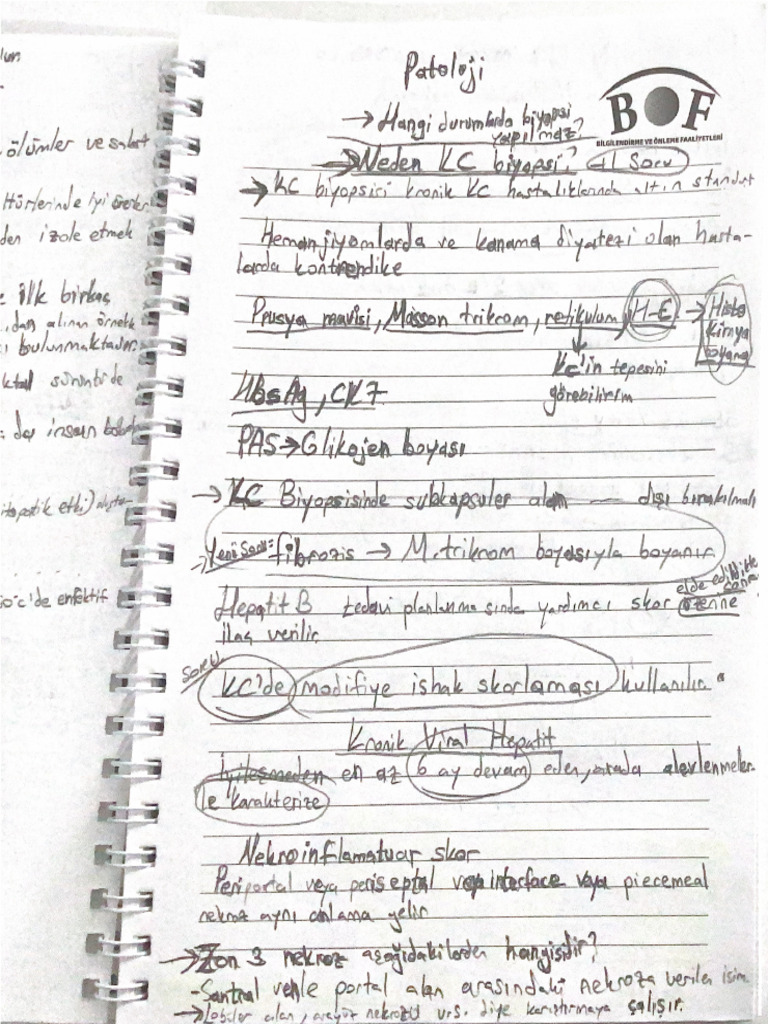 Patoloji
→ Hangi durumlarda biyopsi
yapılmaz?
BOF
BİLGİLENDİRME VE ÖNLEME FAALİYETLERİ
→ Neden KC biyopsi? 1 Soru
→ KC biyopsisi kronik KC hastalıklarında altın standart
Hemanjiyomlarda ve kanama diyatezi olan hasta-
larda kontrendike
Prusya mavisi, Masson trikrom, retikulum, H-E → Histo
kimya
boyama
KC'in tepesini
görebilirim
HbsAg, CK7
PAS → Glikojen boyası
→ KC Biyopsisinde subkapsuler alan dışı bırakılmalı
Yeni Soru: fibrozis → M.trikrom boyasıyla boyanır
elde edildikten
sonra
Hepatit B tedavi planlanmasında yardımcı skor
ilaç verilir
Soru
KC'de modifiye ishak skorlaması kullanılır
Kronik Viral Hepatit
İyileşmeden en az 6 ay devam eder, arada alevlenmeler-
le karakterize
Nekroinflamatuar skor
Periportal veya periseptal veya interface veya piecemeal
nekroz aynı anlama gelir
→ Zon 3 nekroz aşağıdakilerden hangisidir?
- Santral venle portal alan arasındaki nekroza verilen isim
→ Lobüler alan, arayüz nekrozu vrs. diye karıştırmaya çalışır.
ölümler ve sakat
türlerinde iyi
den izole etmek
ilk birkaç
dan alınan örnek
bulunmaktadır
sürüntüde
insan
etki)
c'de enfektif